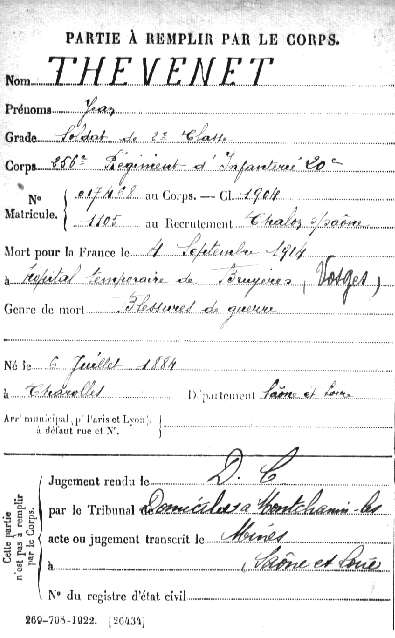 PARTIE À REMPLIR PAR LE CORPS.
Nom THEVENET
Prénoms Jean
Grade Soldat de 2e Classe
Corps 256e Régiment d'Infanterie 20e
No Matricule. 017408 au Corps. — Cl. 1904
1105 au Recrutement Chalon s/Saône
Mort pour la France le 4 Septembre 1914
à Hôpital temporaire de Bruyères, (Vosges)
Genre de mort Blessures de guerre
Né le 6 Juillet 1884
à Charolles Département Saône et Loire
Arrt municipal, (pr Paris et Lyon), à défaut rue et No.
Cette partie n'est pas à remplir par le Corps.
Jugement rendu le D. C
par le Tribunal de Domicilié à Montchanin-les
acte ou jugement transcrit le Mines
à Saône et Loire
No du registre d'état civil
269-708-1922. [26434]